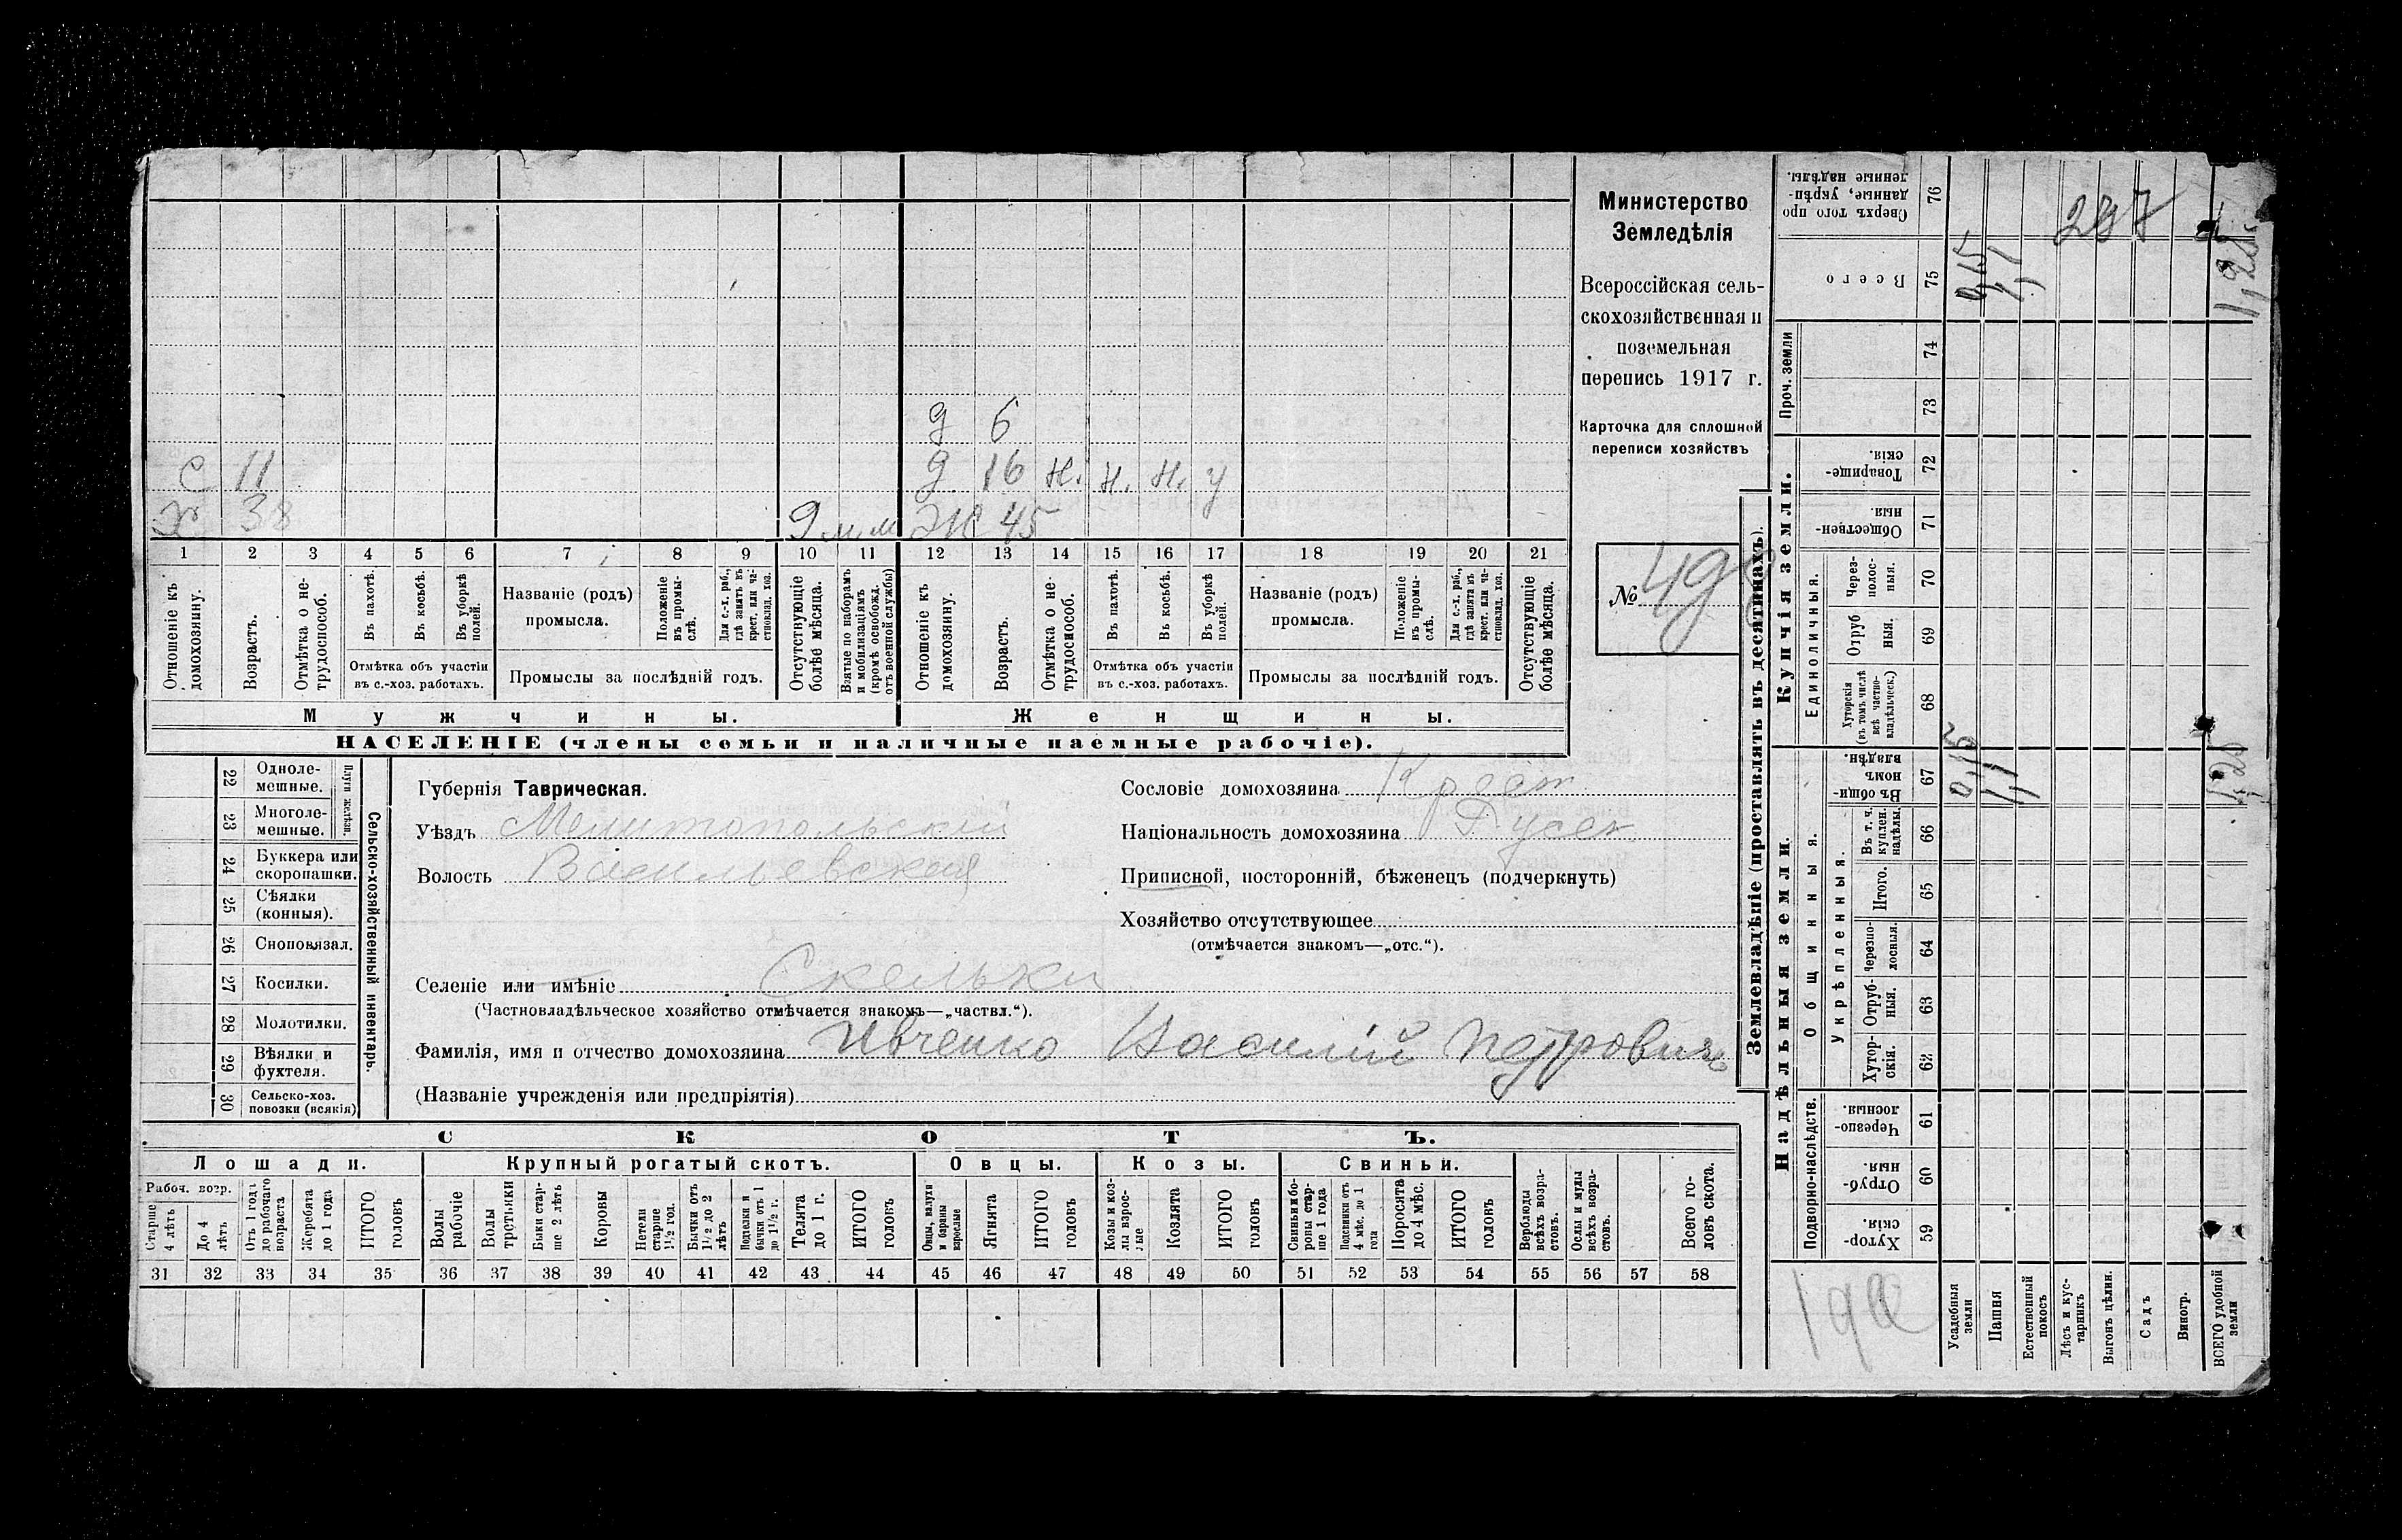 Министерство
Земледѣлія
Всероссійская сель-
скохозяйственная и
поземельная
перепись 1917 г.
Карточка для сплошной
переписи хозяйствъ
№ 49
д 6
с 11
д 16 н. н. н. у
х 38 9 м. м Ж 45
1 2 3 4 5 6 7 8 9 10 11 12 13 14 15 16 17 18 19 20 21
Отношеніе къ домохозяину.
Возрастъ.
Отмѣтка о не-трудоспособ.
Въ пахотѣ.
Въ косьбѣ.
Въ уборкѣ полей.
Отмѣтка объ участіи
въ с.-хоз. работахъ.
Названіе (родъ)
промысла.
Положеніе въ промы-слѣ.
Для с.-х. раб., гдѣ занятъ въ крест. или ча-стновлад. хоз.
Промыслы за послѣдній годъ.
Отсутствующіе болѣе мѣсяца.
Взятые по наборамъ и мобилизаціямъ (кромѣ освобожд. отъ военной службы)
Отношеніе къ домохозяину.
Возрастъ.
Отмѣтка о не-трудоспособ.
Въ пахотѣ.
Въ косьбѣ.
Въ уборкѣ полей.
Отмѣтка объ участіи
въ с.-хоз. работахъ.
Названіе (родъ)
промысла.
Положеніе въ промы-слѣ.
Для с.-х. раб., гдѣ занята въ крест. или ча-стновлад. хоз.
Промыслы за послѣдній годъ.
Отсутствующіе болѣе мѣсяца.
Мужчины. Женщины.
НАСЕЛЕНІЕ (члены семьи и наличные наемные рабочіе).
Сельско-хозяйственный инвентарь.
Плуги желѣзн.
22 Одноле-мешные.
23 Многоле-мешные.
24 Буккера или скоропашки.
25 Сѣялки (конныя).
26 Сноповязал.
27 Косилки.
28 Молотилки.
29 Вѣялки и фухтеля.
30 Сельско-хоз. повозки (всякія)
Губернія Таврическая.
Уѣздъ Мелитопольскій
Волость Васильевская
Сословіе домохозяина Крест
Національность домохозяина Русск
Приписной, посторонній, бѣженецъ (подчеркнуть)
Хозяйство отсутствующее
(отмѣчается знакомъ—„отс.“).
Селеніе или имѣніе Скельки
(Частновладѣльческое хозяйство отмѣчается знакомъ—„частвл.“).
Фамилія, имя и отчество домохозяина Ивченко Василій Петровичъ
(Названіе учрежденія или предпріятія)
СКОТЪ.
Лошади. Крупный рогатый скотъ. Овцы. Козы. Свиньи.
Рабоч. возр.
Старше 4 лѣтъ
До 4 лѣтъ
Отъ 1 года до рабочаго возраста
Жеребята до 1 года
ИТОГО головъ
Волы рабочіе
Волы третьяки
Быки стар-ше 2 лѣтъ
Коровы
Нетели старше 1½ год.
Бычки отъ 1½ до 2 лѣтъ
Подтелки и бычки отъ 1 до 1½ г.
Телята до 1 г.
ИТОГО головъ
Овцы, валухи и бараны взрослые
Ягнята
ИТОГО головъ
Козы и коз-лы взрос-лые
Козлята
ИТОГО головъ
Свиньи и бо-ровы стар-ше 1 года
Подсвинки отъ 4 мѣс. до 1 года
Поросята до 4 мѣс.
ИТОГО головъ
Верблюды всѣхъ возра-стовъ.
Ослы и мулы всѣхъ возра-стовъ.
Всего го-ловъ скота.
31 32 33 34 35 36 37 38 39 40 41 42 43 44 45 46 47 48 49 50 51 52 53 54 55 56 57 58
Землевладѣніе (проставлять въ десятинахъ).
Надѣльныя земли. Купчія земли. Проч. земли
Подворно-наслѣдств.
Общинныя.
Укрѣпленныя.
Единоличныя.
Хутор-скія. 59
Отруб-ныя. 60
Черезпо-лосныя. 61
Хутор-скія. 62
Отруб-ныя. 63
Черезпо-лосныя. 64
Итого. 65
Въ т. ч. куплен. надѣлы. 66
Въ общи-номъ владѣн. 67 0,15 1,1 1,25
Хуторскія (въ томъ числѣ всѣ частно-владѣльческ.) 68
Отруб ныя. 69
Через-полос-ныя. 70
Обществен-ныя. 71
Товарище-скія. 72
73
74
Всего 75 0,15 1,1 1,25
Сверхъ того про данные, укрѣп-ленные надѣлы. 76
Усадебныя земли
Пашня
Естественный покосъ
Лѣсъ и кус-тарникъ
Выгонъ цѣлин.
Садъ
Виногр.
ВСЕГО удобной земли